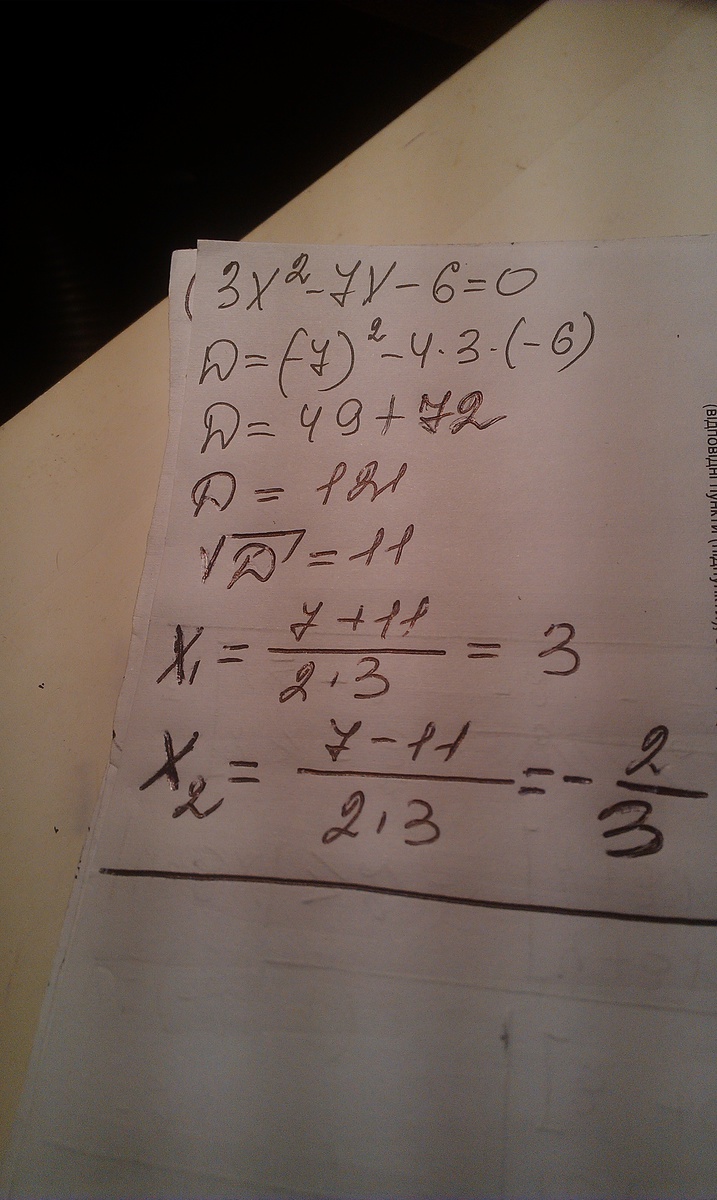 ( 3x²-7x-6=0
D=(-7)²-4·3·(-6)
D=49+72
D=121
√D=11
x₁=(7+11)/(2·3)=3
x₂=(7-11)/(2·3)=-2/3
(відповідні пункти